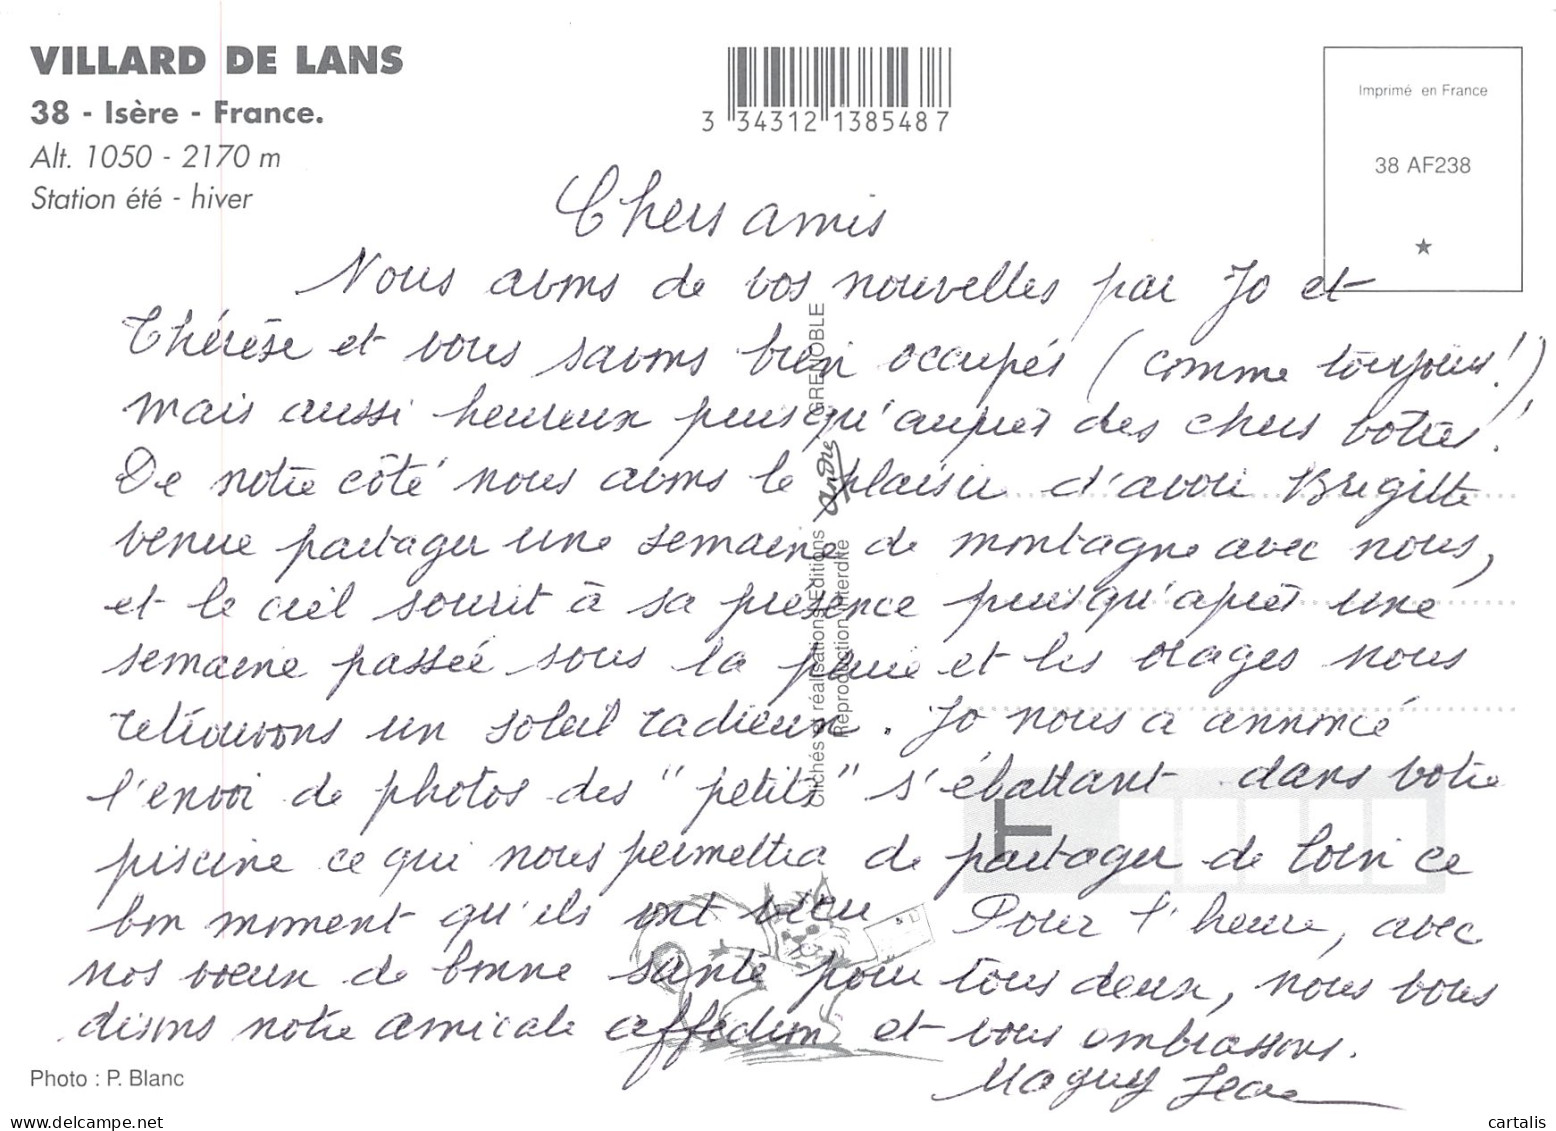 VILLARD DE LANS
38 - Isère - France.
Alt. 1050 - 2170 m
Station été - hiver
3 34312 138548 7
Imprimé en France
38 AF238
Chers amis
Nous avons de vos nouvelles par Jo et
Thérèse et vous savons bien occupés (comme toujours!)
mais aussi heureux puisqu'auprès des chers vôtres!
De notre côté nous avons le plaisir d'avoir Brigitte
venue partager une semaine de montagne avec nous,
et le ciel sourit à sa présence puisqu'après une
semaine passée sous la pluie et les orages nous
retrouvons un soleil radieux. Jo nous a annoncé
l'envoi de photos des "petits" s'ébattant dans votre
piscine ce qui nous permettra de partager de loin ce
bon moment qu'ils ont vécu Pour l'heure, avec
nos voeux de bonne santé pour tous deux, nous vous
disons notre amicale affection et vous embrassons.
Maguy Jean
Clichés et réalisations Editions André GRENOBLE
Reproduction interdite
Photo : P. Blanc
delcampe.net
cartalis